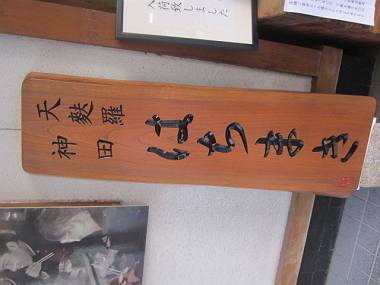 天麩羅
神田
はちまき
入荷致しました